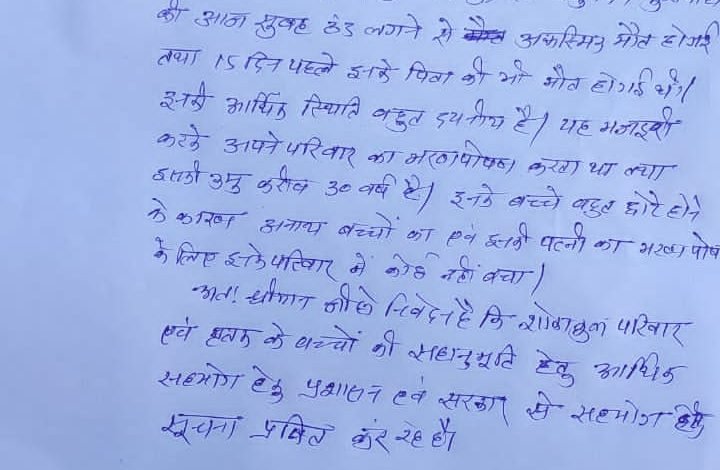 की आज सुबह ठंड लगने से अकस्मिक मौत होगई
तथा 15 दिन पहले इनके पिता की भी मौत होगई थी।
इनकी आर्थिक स्थिति बहुत दयनीय है। यह मजदूरी
करके अपने परिवार का भरण पोषण करता था तथा
इसकी उम्र करीब 30 वर्ष है। इनके बच्चे बहुत छोटे होने
के कारण अनाथ बच्चों का एवं इनकी पत्नी का भरण पोष
के लिए इनके परिवार में कोई नहीं बचा।
अतः श्रीमान जी से निवेदन है कि शोकाकुल परिवार
एवं मृतक के बच्चों की सहानुभूति हेतु आर्थिक
सहयोग हेतु प्रशासन एवं सरकार से सहयोग हेतु
सूचना प्रेषित कर रहे है।